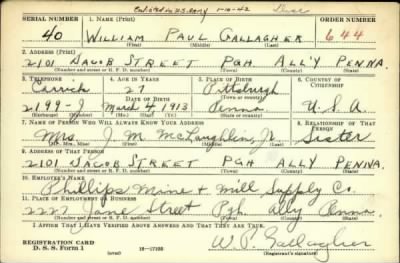 Enlisted in U.S. Army 1-10-42
SERIAL NUMBER 1. NAME (Print) ORDER NUMBER
40 WILLIAM PAUL GALLAGHER 644
(First) (Middle) (Last)
2. ADDRESS (Print)
2101 JACOB STREET PGH ALL'Y PENNA.
(Number and street or R. F. D. number) (Town) (County) (State)
3. TELEPHONE 4. AGE IN YEARS 5. PLACE OF BIRTH 6. COUNTRY OF CITIZENSHIP
Carrick 27 Pittsburgh
DATE OF BIRTH (Town or county)
2199-J March 4 1913 Penna. U.S.A.
(Exchange) (Number) (Mo.) (Day) (Yr.) (State or country)
7. NAME OF PERSON WHO WILL ALWAYS KNOW YOUR ADDRESS 8. RELATIONSHIP OF THAT PERSON
Mrs. J. M. McLaughlin, Jr. Sister
(Mr., Mrs., Miss) (First) (Middle) (Last)
9. ADDRESS OF THAT PERSON
2101 JACOB STREET PGH ALL'Y PENNA.
(Number and street or R. F. D. number) (Town) (County) (State)
10. EMPLOYER'S NAME
Phillips Mine & Mill Supply Co.
11. PLACE OF EMPLOYMENT OR BUSINESS
2227 Jane Street Pgh. Ally Penna.
(Number and street or R. F. D. number) (Town) (County) (State)
I AFFIRM THAT I HAVE VERIFIED ABOVE ANSWERS AND THAT THEY ARE TRUE.
REGISTRATION CARD W. P. Gallagher
D. S. S. Form 1 (over) 16-17105 (Registrant's signature)